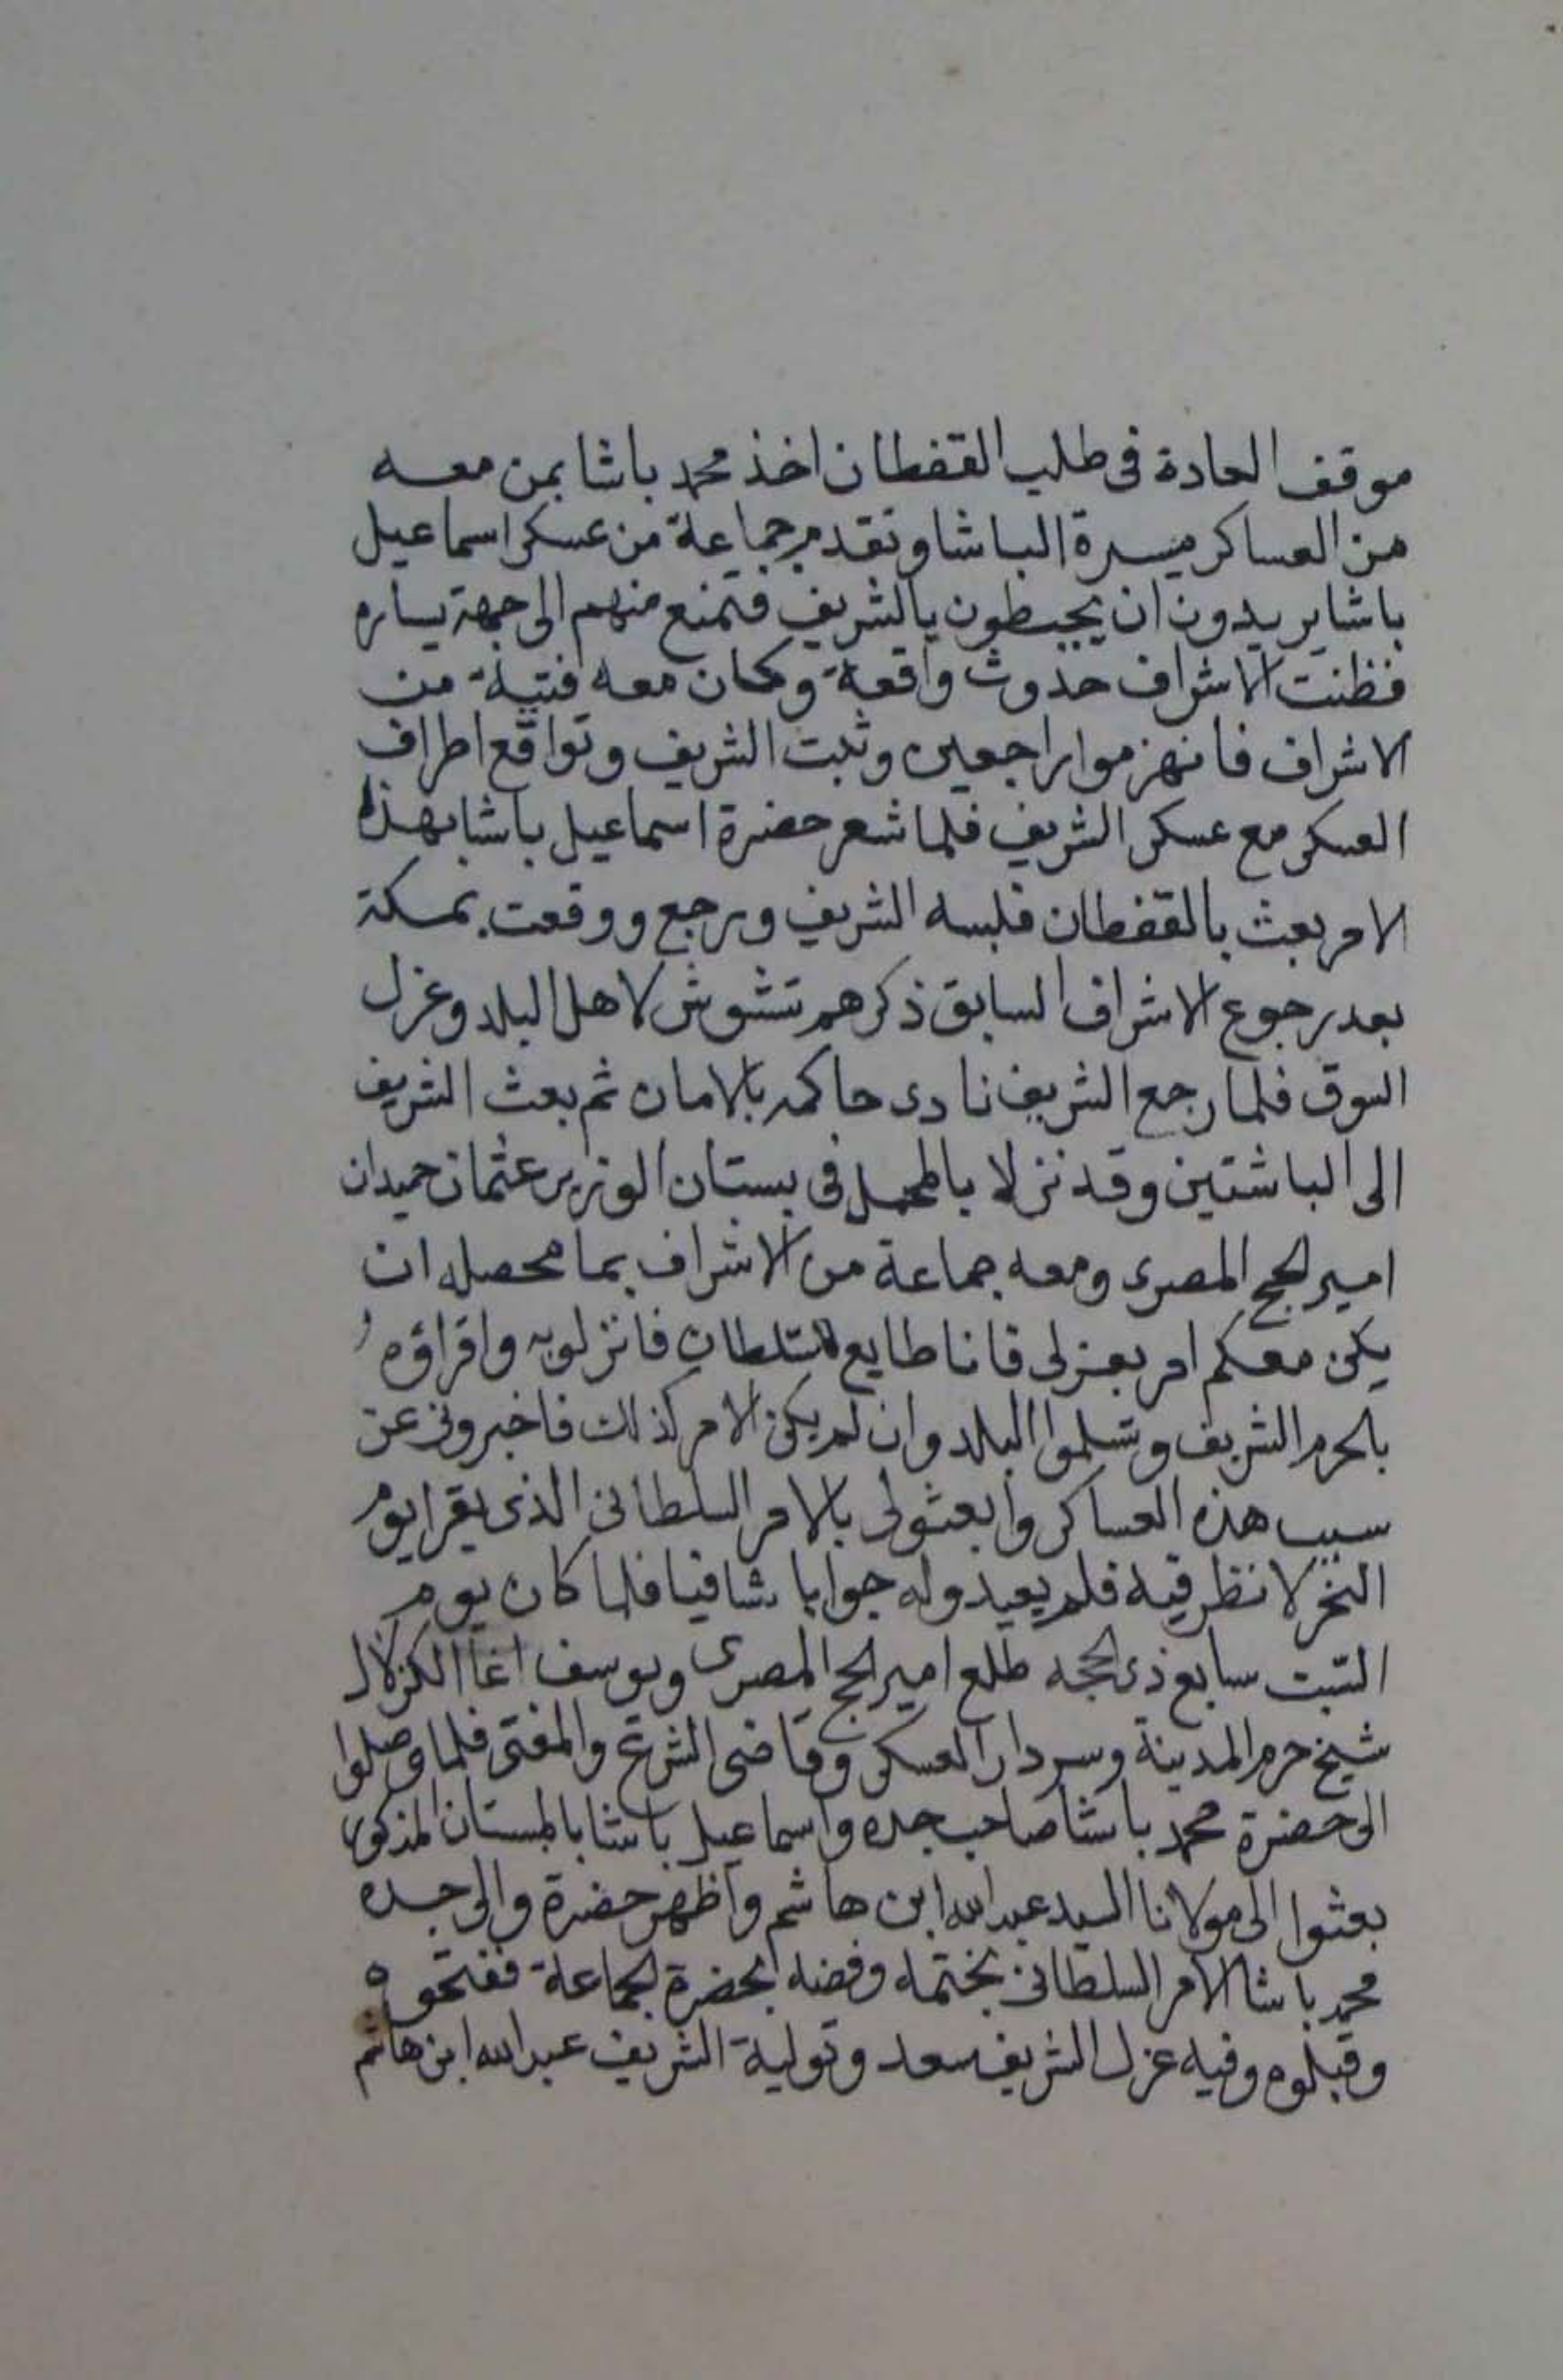 موقف العادة فى طلب القفطان اخذ محمد باشا بمن معه
من العساكر ميسرة الباشا وتقدم جماعة من عسكر اسماعيل
باشا يريدون ان يحيطون بالشريف فتمنع منهم الى جهة يساره
فظنت الاشراف حدوث واقعة وكان معه فتية من
الاشراف فانهزموا راجعين وثبت الشريف وتواقع اطراف
العسكر مع عسكر الشريف فلما شعر حضرة اسماعيل باشا بهذا
الامر بعث بالقفطان فلبسه الشريف ورجع ووقعت بمكة
بعد رجوع الاشراف السابق ذكرهم تشوش لاهل البلد وعزل
السوق فلما رجع الشريف نادى حاكمه بالامان ثم بعث الشريف
الى الباشتين وقد نزلا بالمحمل فى بستان الوزير عثمان حميدان
امير الحج المصرى ومعه جماعة من الاشراف بما محصله ان
يكن معكم امر بعزلى فانا طايع للسلطان فانزلوبه واقراؤه
بالحرم الشريف وتسلموا البلد وان لم يكن الامر كذلك فاخبرونى عن
سبب هذه العساكر وابعثولى بالامر السلطانى الذى يقرا يوم
النحر لانظر فيه فلم يعيدوله جوابا شافيا فلما كان يوم
السبت سابع ذى الحجه طلع امير الحج المصرى ويوسف اغا الكزلار
شيخ حرم المدينة وسردار العسكر وقاضى الشرع والمفتى فلما وصلوا
الى حضرة محمد باشا صاحب جده واسماعيل باشا بالبستان المذكور
بعثوا الى مولانا السيد عبدالله ابن هاشم واظهر حضرة والى جده
محمد باشا الامر السلطانى بختمه وفضه بحضرة الجماعة ففتحوه
وقبلوه وفيه عزل الشريف سعد وتولية الشريف عبدالله ابن هاشم